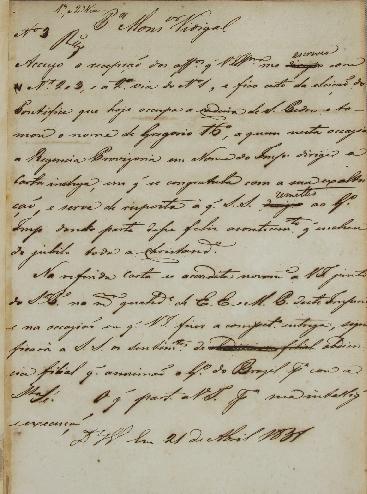 1ª e 2ª Via
Pª Monsor Vidigal
Nº 3
Rmo
Accuso a recepção dos offos q' V. Illma me escreveo com
Nº 2 e 3, e a 2ª via do Nº 1, e fico certo da eleição do
Pontifice que hoje occupa a cadeira de S. Pedro e to-
mou o nome de Gregorio 16º, a quem nesta occasião
a Regencia Provizoria em Nome do Impor dirige a
Carta incluza, em q' se congratula com a sua exalta-
ção, e serve de resposta á q' S. S. remetteo ao Sr
Impor dando parte deste feliz acontecimto q' encheu
de jubilo toda a christande
Na referida Carta se acredita novamte a V. I. junto
do Sto Pe na mma qualide de E. E. e M. P. deste Imperio
e na occasião em q' V. I. fizer a compette entrega, signi-
ficará a S. S. os sentimtos de obedien-
cia filial q' animão o Go do Brazil pa com a
Sta Sé.
O q' partº a V. I. pa sua intelliga
e execução
Ds Ge Em 21 de Abril 1831